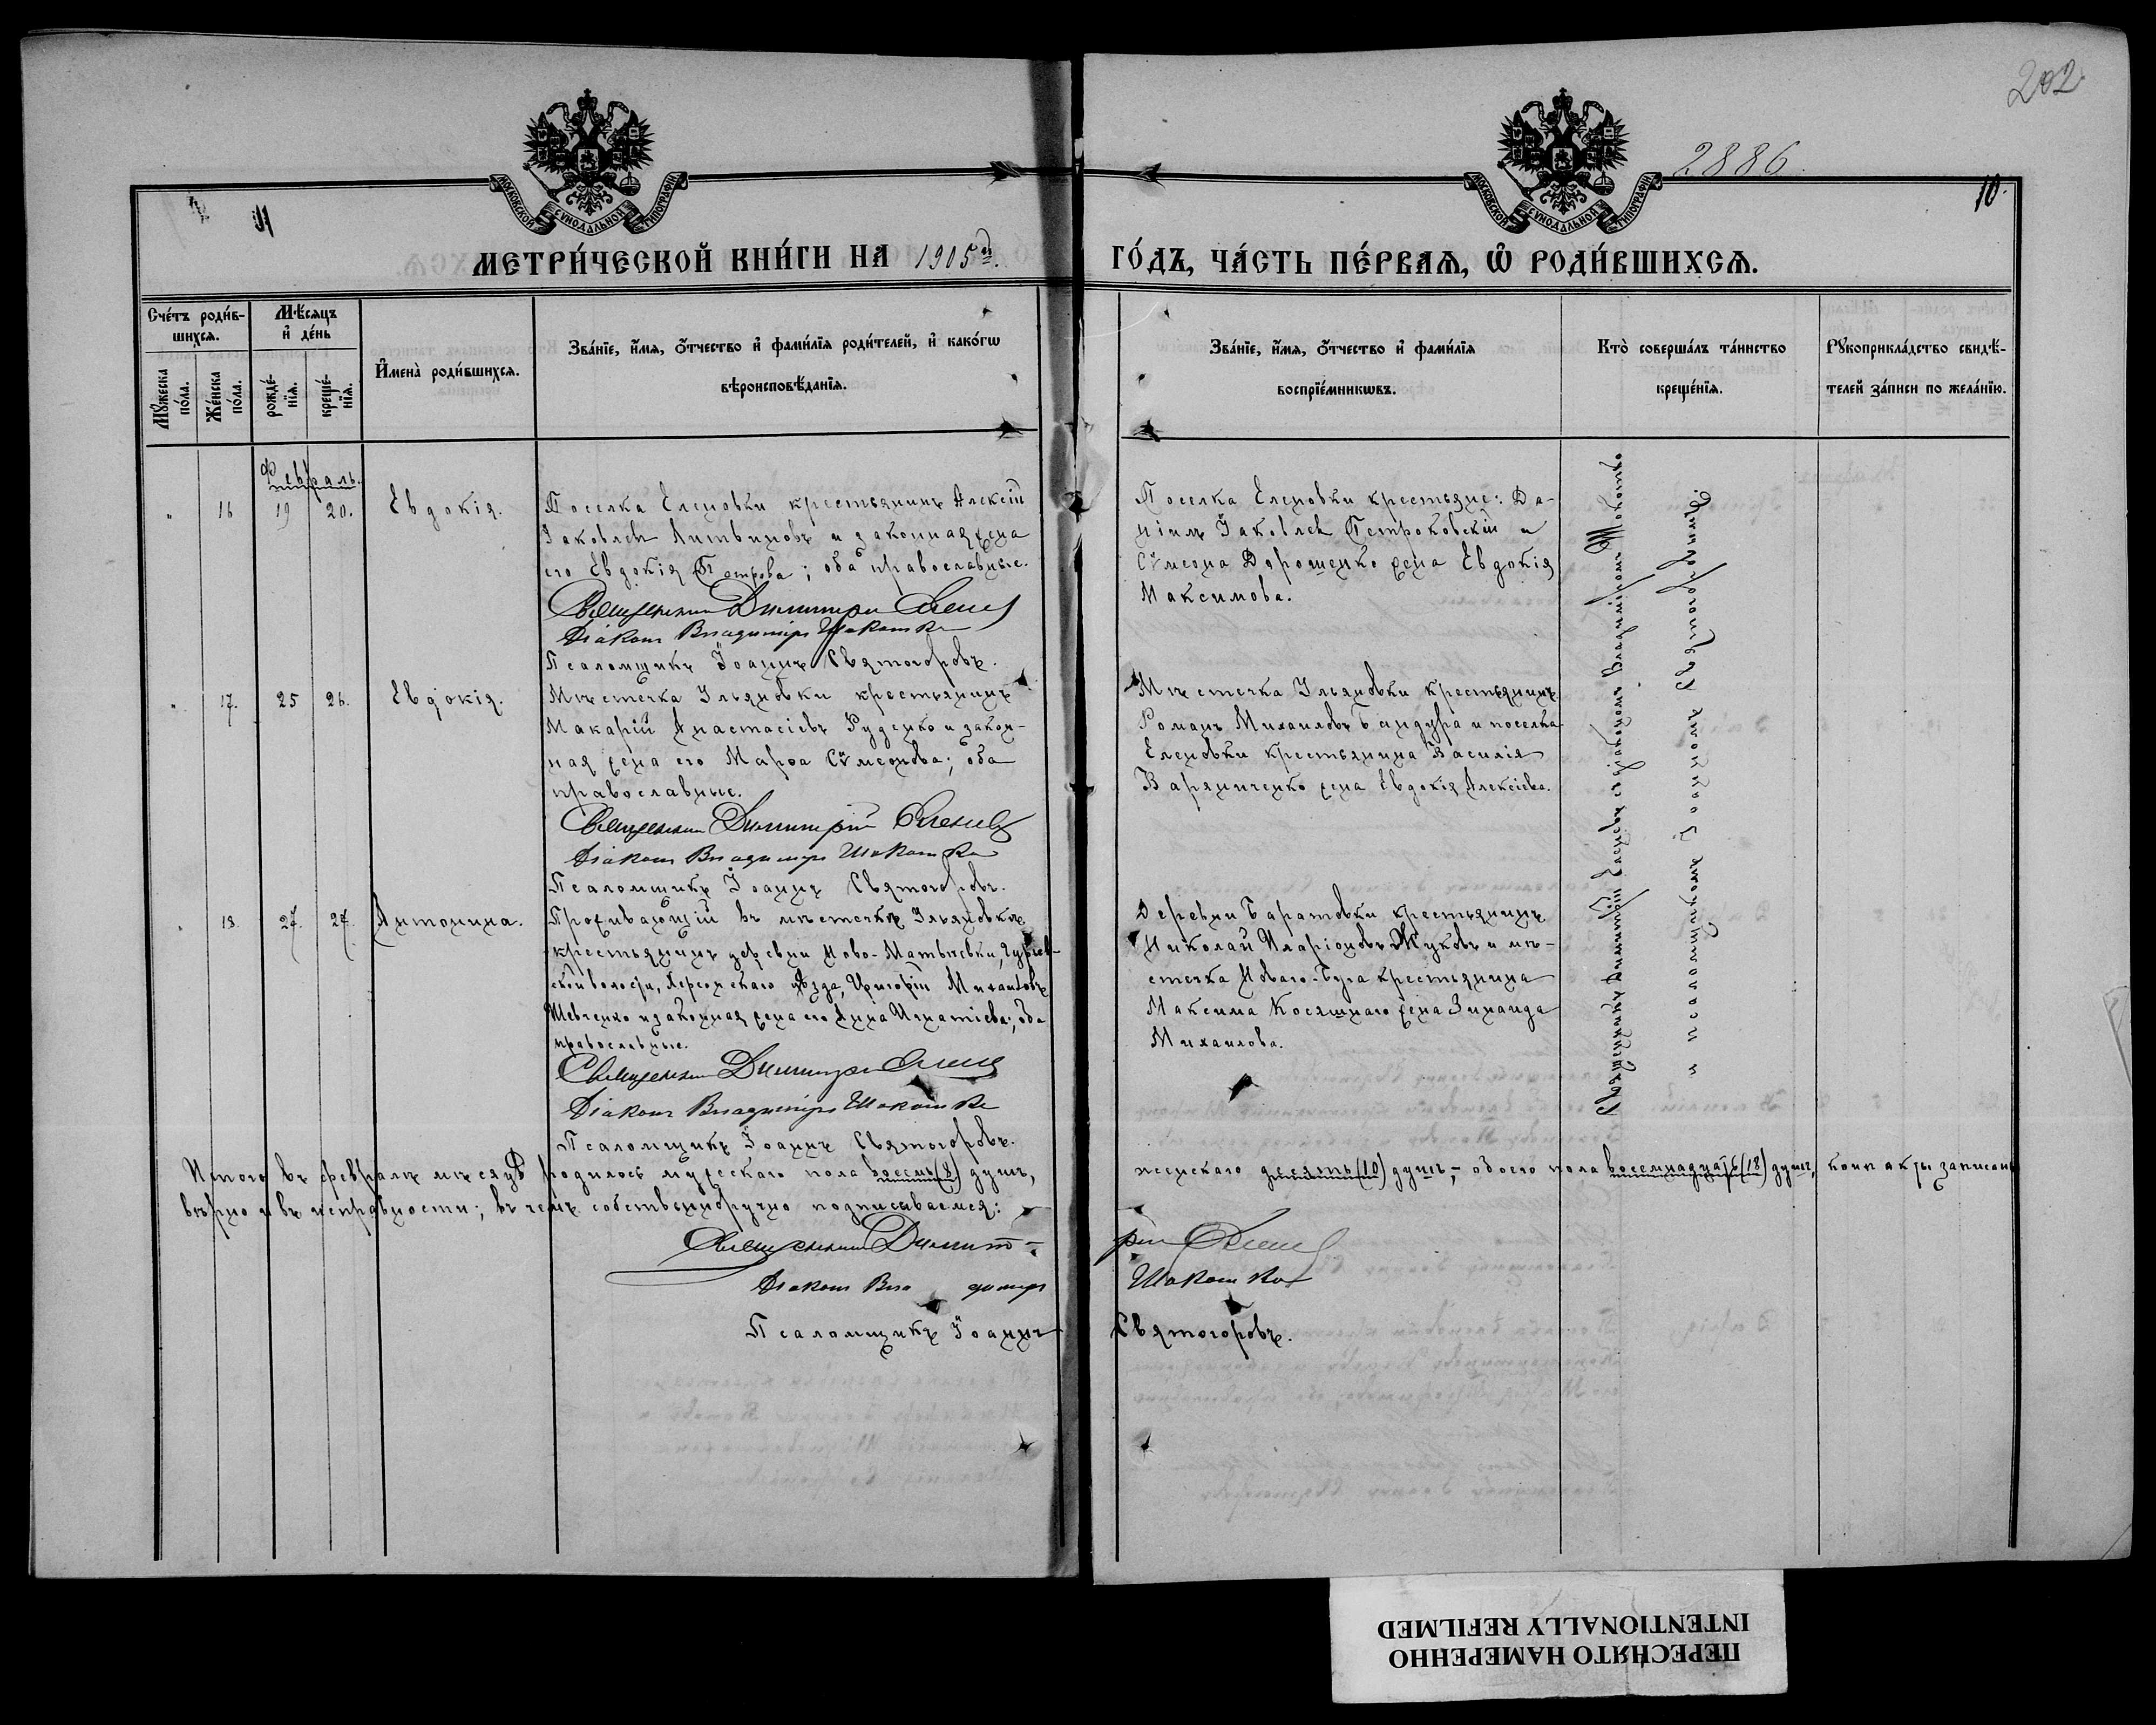 202
2886
10.
МОСКОВСКОЙ СѴНОДАЛЬНОЙ ТИПОГРАФІИ
МОСКОВСКОЙ СѴНОДАЛЬНОЙ ТИПОГРАФІИ
МЕТРИ́ЧЕСКОЙ КНИ́ГИ НА 1905й. ГО́ДЪ, ЧА́СТЬ ПЕ́РВАЯ, Ѡ РОДИ́ВШИХСЯ.
Сче́тъ роди́в-
шихся.
Мѣ́сяцъ
и҆ де́нь
Мꙋ́жеска
по́ла.
Же́нска
по́ла.
рожде́-
нїя.
креще́-
нїя.
И҆мена̀ роди́вшихся.
Зва́нїе, и҆́мя, ѻ҆́тчество и҆ фами́лїя роди́телей, и҆ како́гѡ
вѣроисповѣ́данїя.
Зва́нїе, и҆́мя, ѻ҆́тчество и҆ фами́лїя
воспрїе́мникѡвъ.
Кто̀ соверша́лъ та́инство
креще́нїя.
Рꙋкоприкла́дство свидѣ́-
телей за́писи по жела́нїю.
Февраль.
" 16 19 20. Евдокія.
Поселка Еленовки крестьянинъ Алексій
Іаковлевъ Литвиновъ и законная жена
его Евдокія Петрова; оба православные.
Священникъ Димитрій
Діаконъ Владиміръ Шокотко
Псаломщикъ Іоаннъ Святогоровъ.
Поселка Еленовки крестьяне: Да-
ніилъ Іаковлевъ Петроковскій и
Сѵмеона Дорошенко жена Евдокія
Максимова.
" 17. 25 26. Евдокія.
Мѣстечка Ульяновки крестьянинъ
Макарій Анастасіевъ Руденко и закон-
ная жена его Марѳа Сѵмеонова; оба
православные.
Священникъ Димитрій
Діаконъ Владиміръ Шокотко
Псаломщикъ Іоаннъ Святогоровъ.
Мѣстечка Ульяновки крестьянинъ
Романъ Михаиловъ Бандура и поселка
Еленовки крестьянина Василія
Варяниченко жена Евдокія Алексіева.
" 18. 27. 27. Антонина.
Проживающій въ мѣстечкѣ Ульяновкѣ
крестьянинъ деревни Ново-Матвѣевки, Гурьев-
ской волости, Херсонскаго уѣзда, Григорій Михаиловъ
Шевченко и законная жена его Анна Игнатіева; оба
православные.
Священникъ Димитрій
Діаконъ Владиміръ Шокотко
Псаломщикъ Іоаннъ Святогоровъ.
Деревни Баратовки крестьянинъ
Николай Иларіоновъ Жуковъ и мѣ-
стечка Новаго-Буга крестьянина
Максима Косяшнаго жена Зинаида
Михаилова.
Священникъ Димитрій Еленевъ съ діакономъ Владиміромъ Шокотко
и псаломщикомъ Іоанномъ Святогоровымъ.
Итого въ февралѣ мѣсяцѣ родилось мужескаго пола восемь (8) душъ, женскаго десять (10) душъ,- обоего пола восемнадцать (18) душъ, коихъ акты записаны
вѣрно и въ исправности; въ чемъ собственноручно подписываемся:
Священникъ Димитрій
Діаконъ Владиміръ Шокотко
Псаломщикъ Іоаннъ Святогоровъ.
ПЕРЕСНЯТО НАМЕРЕННО
INTENTIONALLY REFILMED